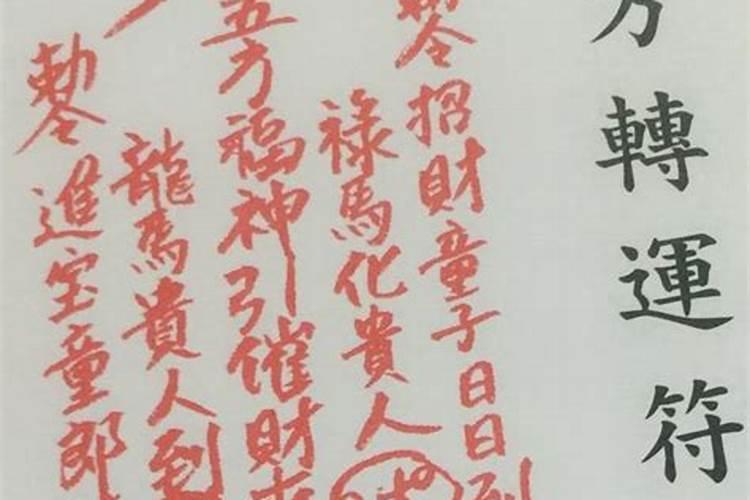 方轉運符
勅令招財童子日日到
祿馬化貴人
五方福神引催財
龍馬貴人到
勅令進宝童郎